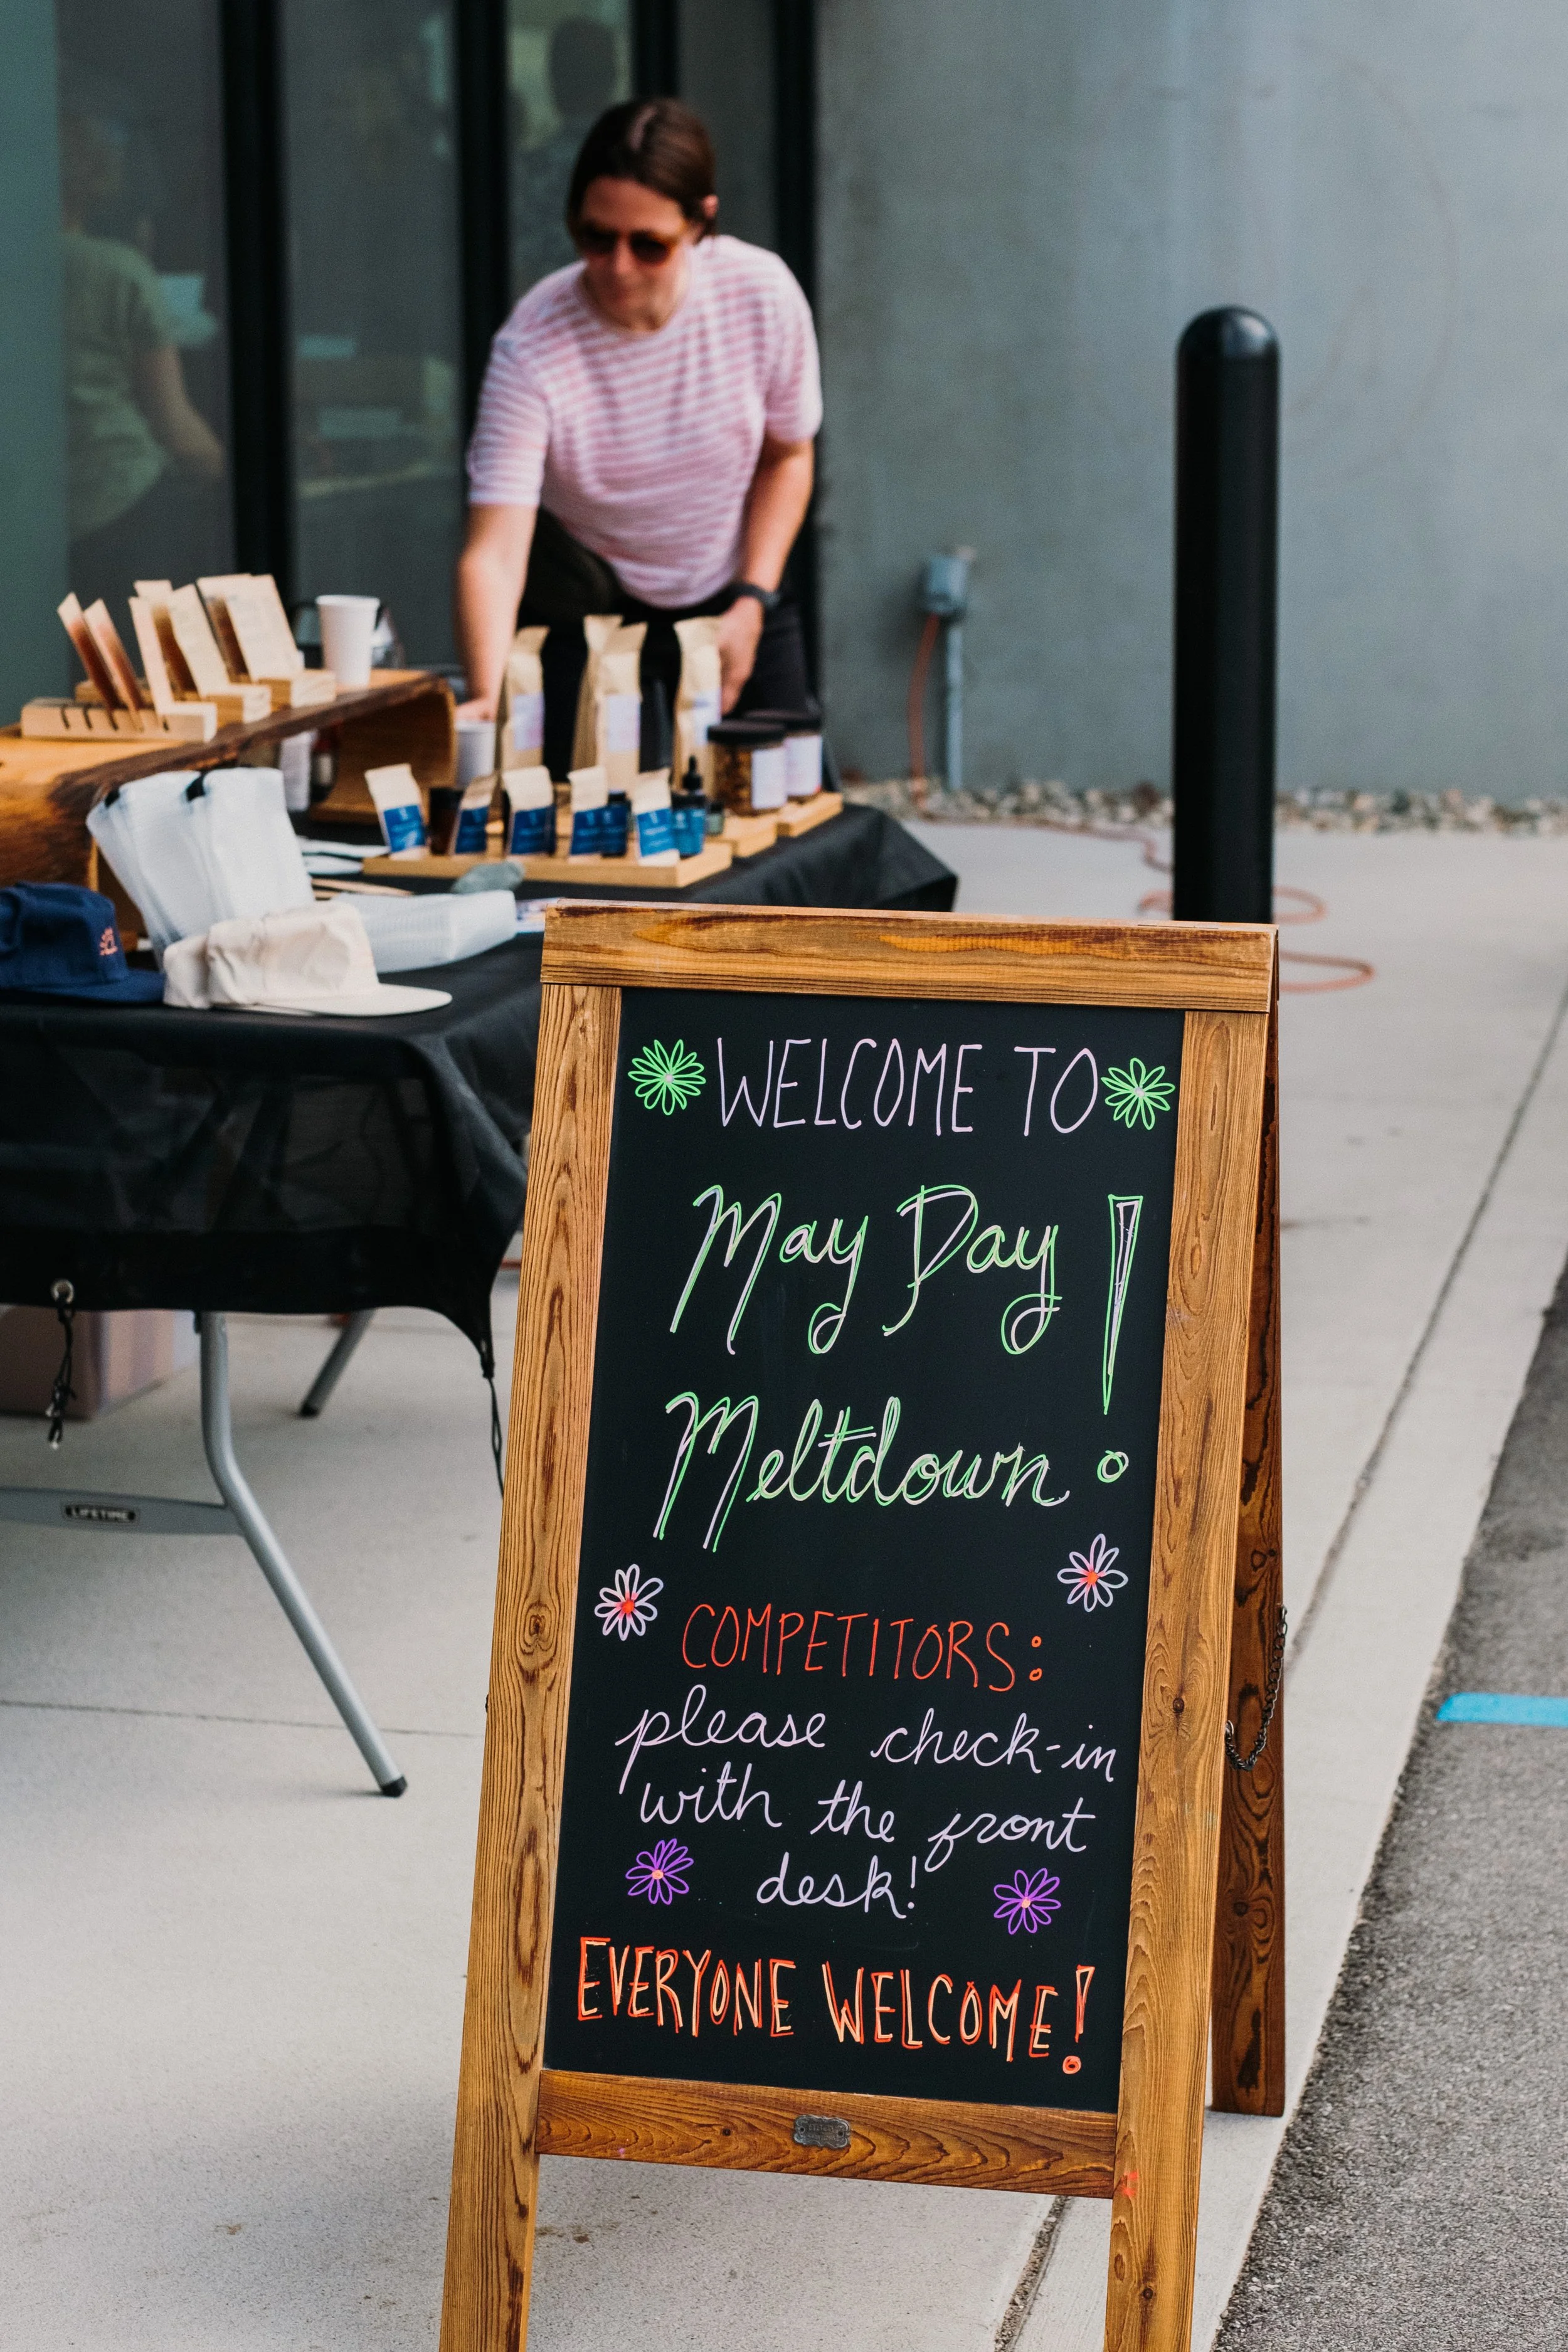 WELCOME TO
May Day
Meltdown!
COMPETITORS:
please check-in
with the front
desk!
EVERYONE WELCOME!
LIFETIME